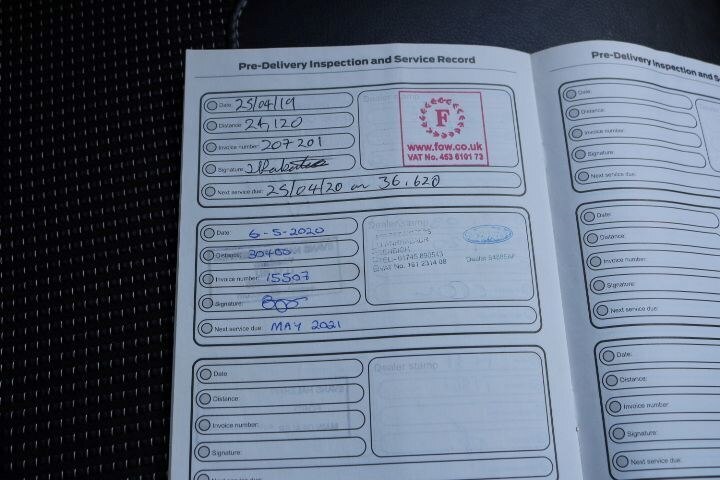 Pre-Delivery Inspection and Service Record
Date: 25/04/19
Distance: 24,120
Invoice number: 207201
Signature:
Next service due: 25/04/20 or 36,620
F
www.fow.co.uk
VAT No. 453 6191 73
Date: 6-5-2020
Distance: 30460
Invoice number: 15507
Signature:
Next service due: MAY 2021
Dealer stamp
TEL-01745
VAT No.
Dealer
Date
Distance
Invoice number:
Signature:
Dealer stamp
Pre-Delivery Inspection and S
Date:
Distance:
Invoice number:
Signature:
Next service due:
Date:
Distance:
Invoice number:
Signature:
Next service due:
Date:
Distance:
Invoice number
Signature:
Next service due: